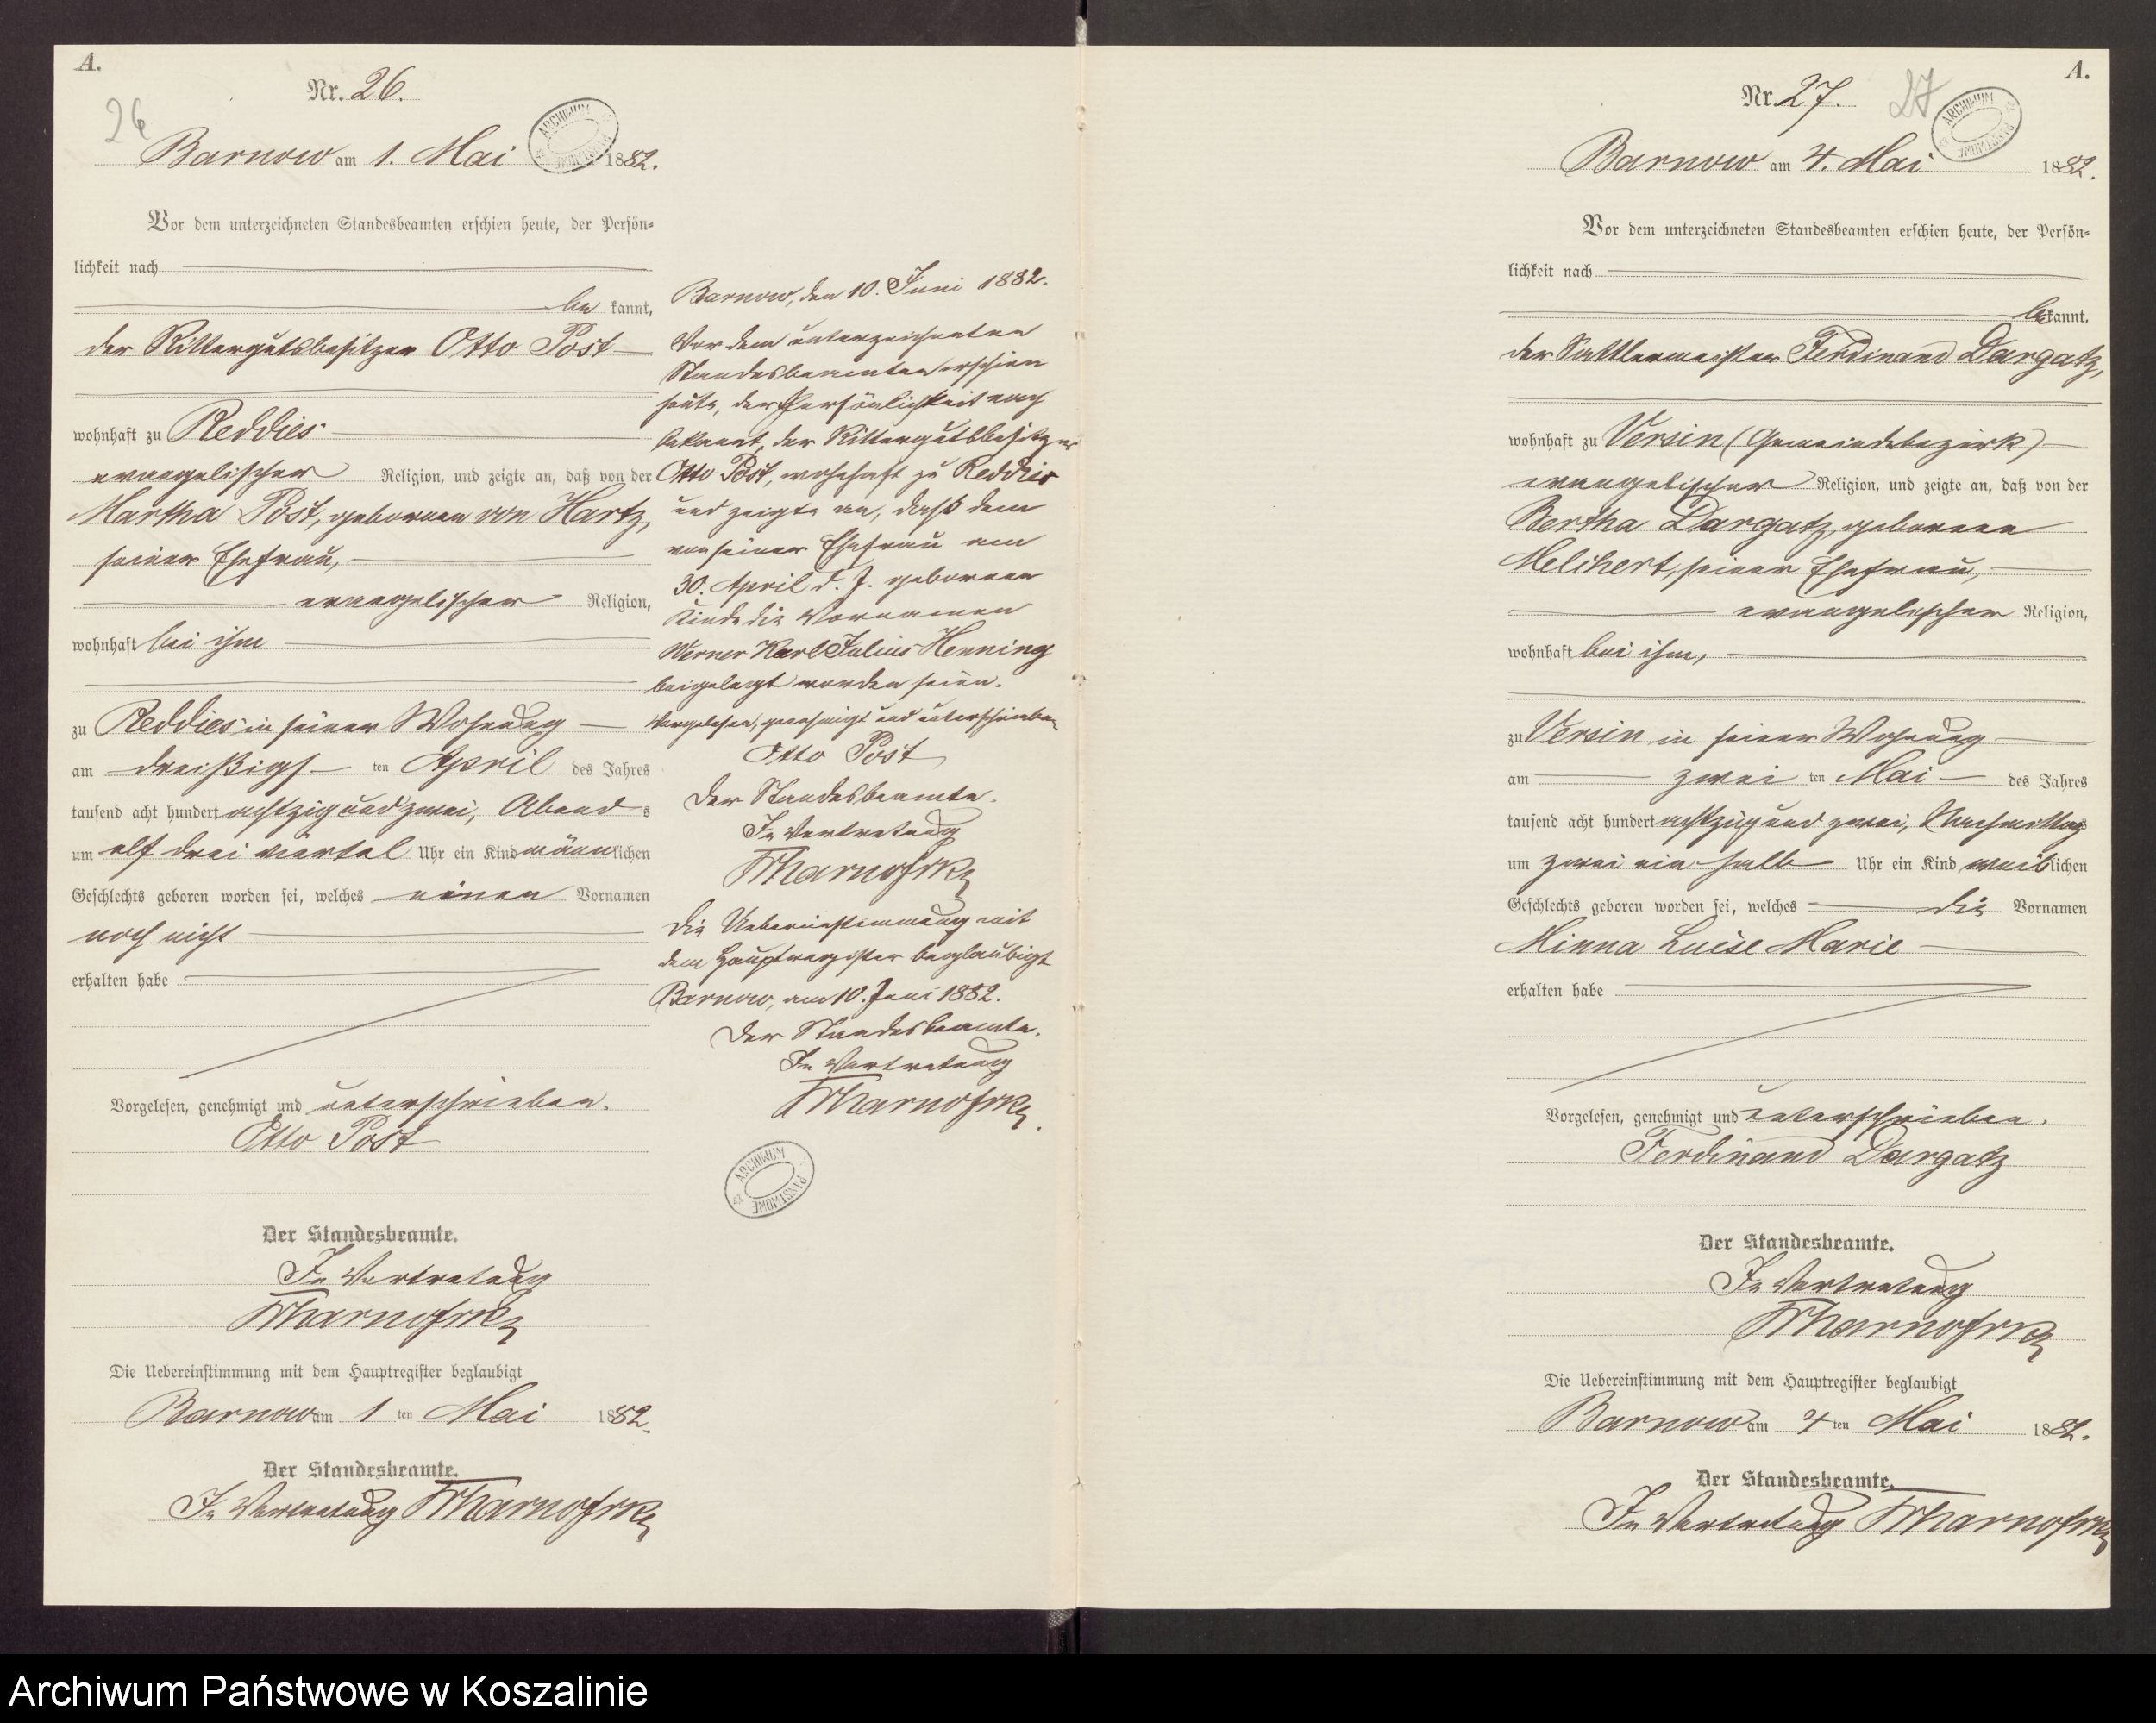 A.
Nr. 26.
26
ARCHIWUM PAŃSTWOWE
Barnow am 1. Mai 1882.
Vor dem unterzeichneten Standesbeamten erschien heute, der Persön-
lichkeit nach
be kannt,
der Rittergutsbesitzer Otto Post
wohnhaft zu Reddies
evangelischer Religion, und zeigte an, daß von der
Martha Post, geborenen von Hartz,
seiner Ehefrau,
evangelischer Religion,
wohnhaft bei ihm
zu Reddies in seiner Wohnung
am dreißigs ten April des Jahres
tausend acht hundert achtzig und zwei, Abend s
um elf drei viertel Uhr ein Kind männlichen
Geschlechts geboren worden sei, welches einen Vornamen
noch nicht
erhalten habe
Vorgelesen, genehmigt und unterschrieben.
Otto Post
Der Standesbeamte.
In Vertretung
Die Uebereinstimmung mit dem Hauptregister beglaubigt
Barnow am 1 ten Mai 1882.
Der Standesbeamte.
In Vertretung
Barnow, den 10. Juni 1882.
Vor dem unterzeichneten
Standesbeamten erschien
heute, der Persönlichkeit nach
bekannt, der Rittergutsbesitzer
Otto Post, wohnhaft zu Reddies
und zeigte an, daß dem
von seiner Ehefrau am
30. April d. J. geborenen
Kinde die Vornamen
Werner Karl Julius Henning
beigelegt worden seien.
Vorgelesen, genehmigt und unterschrieben
Otto Post
Der Standesbeamte.
In Vertretung
Die Uebereinstimmung mit
dem Hauptregister beglaubigt
Barnow, am 10. Juni 1882.
Der Standesbeamte.
In Vertretung
ARCHIWUM PAŃSTWOWE
A.
Nr. 27.
27
ARCHIWUM PAŃSTWOWE
Barnow am 4. Mai 1882.
Vor dem unterzeichneten Standesbeamten erschien heute, der Persön-
lichkeit nach
bekannt,
der Sattlermeister Ferdinand Dargatz,
wohnhaft zu Versin (Gemeindebezirk)
evangelischer Religion, und zeigte an, daß von der
Bertha Dargatz, geborenen
Melchert, seiner Ehefrau,
evangelischer Religion,
wohnhaft bei ihm,
zu Versin in seiner Wohnung
am zwei ten Mai des Jahres
tausend acht hundert achtzig und zwei, Nachmittags
um zwei ein halb Uhr ein Kind weiblichen
Geschlechts geboren worden sei, welches die Vornamen
Minna Luise Marie
erhalten habe
Vorgelesen, genehmigt und unterschrieben.
Ferdinand Dargatz
Der Standesbeamte.
In Vertretung
Die Uebereinstimmung mit dem Hauptregister beglaubigt
Barnow am 4 ten Mai 1882.
Der Standesbeamte.
In Vertretung
Archiwum Państwowe w Koszalinie